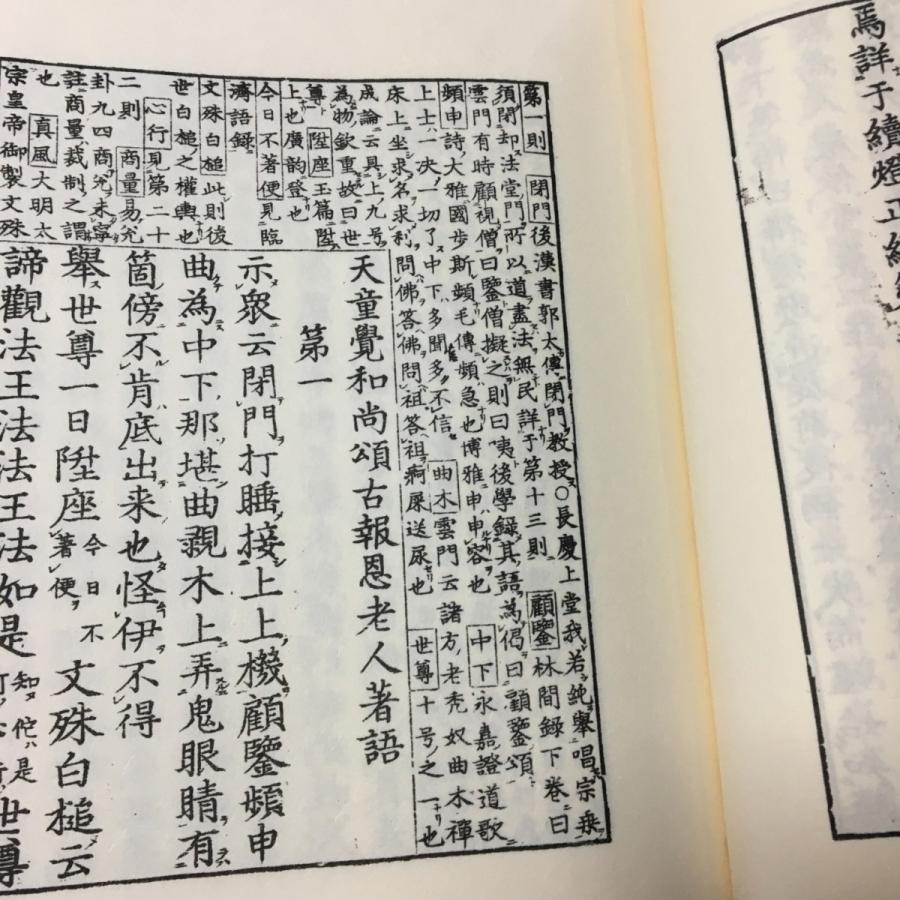 焉詳于續燈正
第一則 閉門後漢書郭太傳閉門教授○長慶上堂我若純舉唱宗乗
須閉却法堂門所以道盡法無民詳于第十三則 顧鑒林間録下卷曰
雲門有時顧視僧曰鑒僧擬之則曰咦後學録其語為偈曰顧鑒頌
頻申詩大雅國步斯頻毛傳頻急也博雅申申容也 中下永嘉證道歌
上士一决一切了中下多聞多不信 曲木雲門云諸方老秃奴曲木禪
床上坐求名求利問佛答佛問祖答祖痾屎送尿也 世尊十号之一也
成論云具上九号
為物欽重故曰世
尊 陞座玉篇陞
上也廣韵登也
今日不著便見臨
濟語録
文殊白槌此則後
世白槌之權輿也
心行見第二十
二則 商量易兊
卦九四商兊未寧
註商量裁制之謂
也 真風大明太
宗皇帝御製文殊
天童覺和尚頌古報恩老人著語
第一
示衆云閉門打睡接上上機顧鑒頻申
曲為中下那堪曲親木上弄鬼眼睛有
箇傍不肯底出来也怪伊不得
舉世尊一日陞座今日不著便文殊白槌云
諦觀法王法法王法如是知佗是 世尊